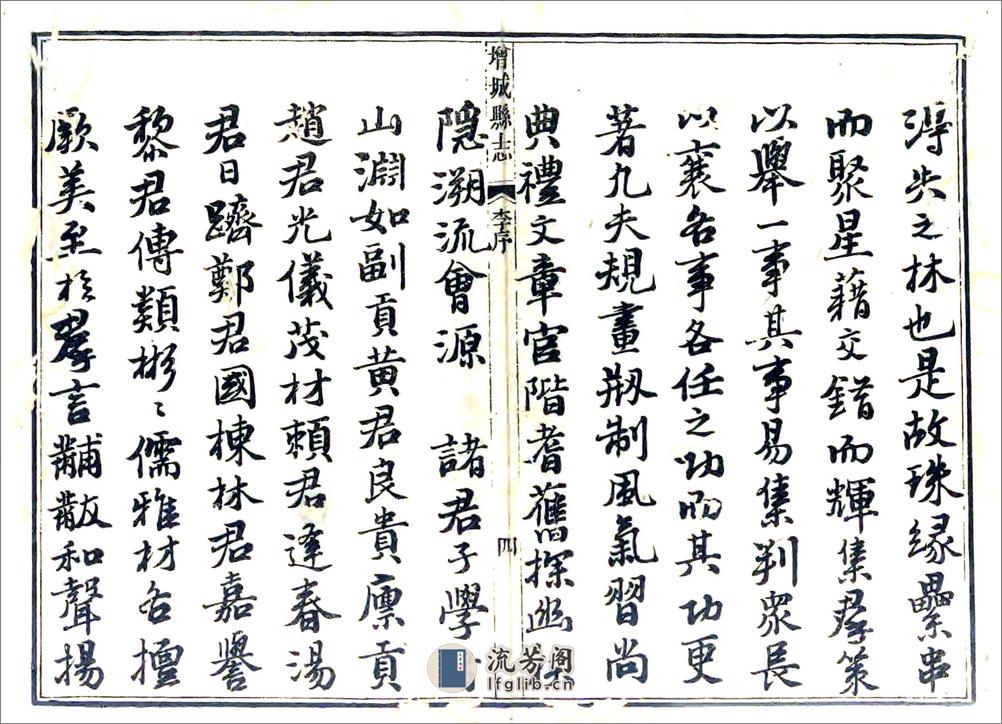 淂失之林也是故珠緣纍串
而聚星藉交錯而輝集羣策
以舉一事其事易集判衆長
以襄各事各任之功而其功更
著凡夫規畫剏制風氣習尚
典禮文章官階耆舊探幽
增城縣志 李序 四
隐溯流會源 諸君子學
山淵如副貢黄君良貴廪貢
趙君光儀茂材賴君逢春湯
君日躋鄭君國棟林君嘉譽
黎君傳類彬〻儒雅材各擅
厥美至於羣言黼黻和聲揚
流芳阁
lfglib.cn